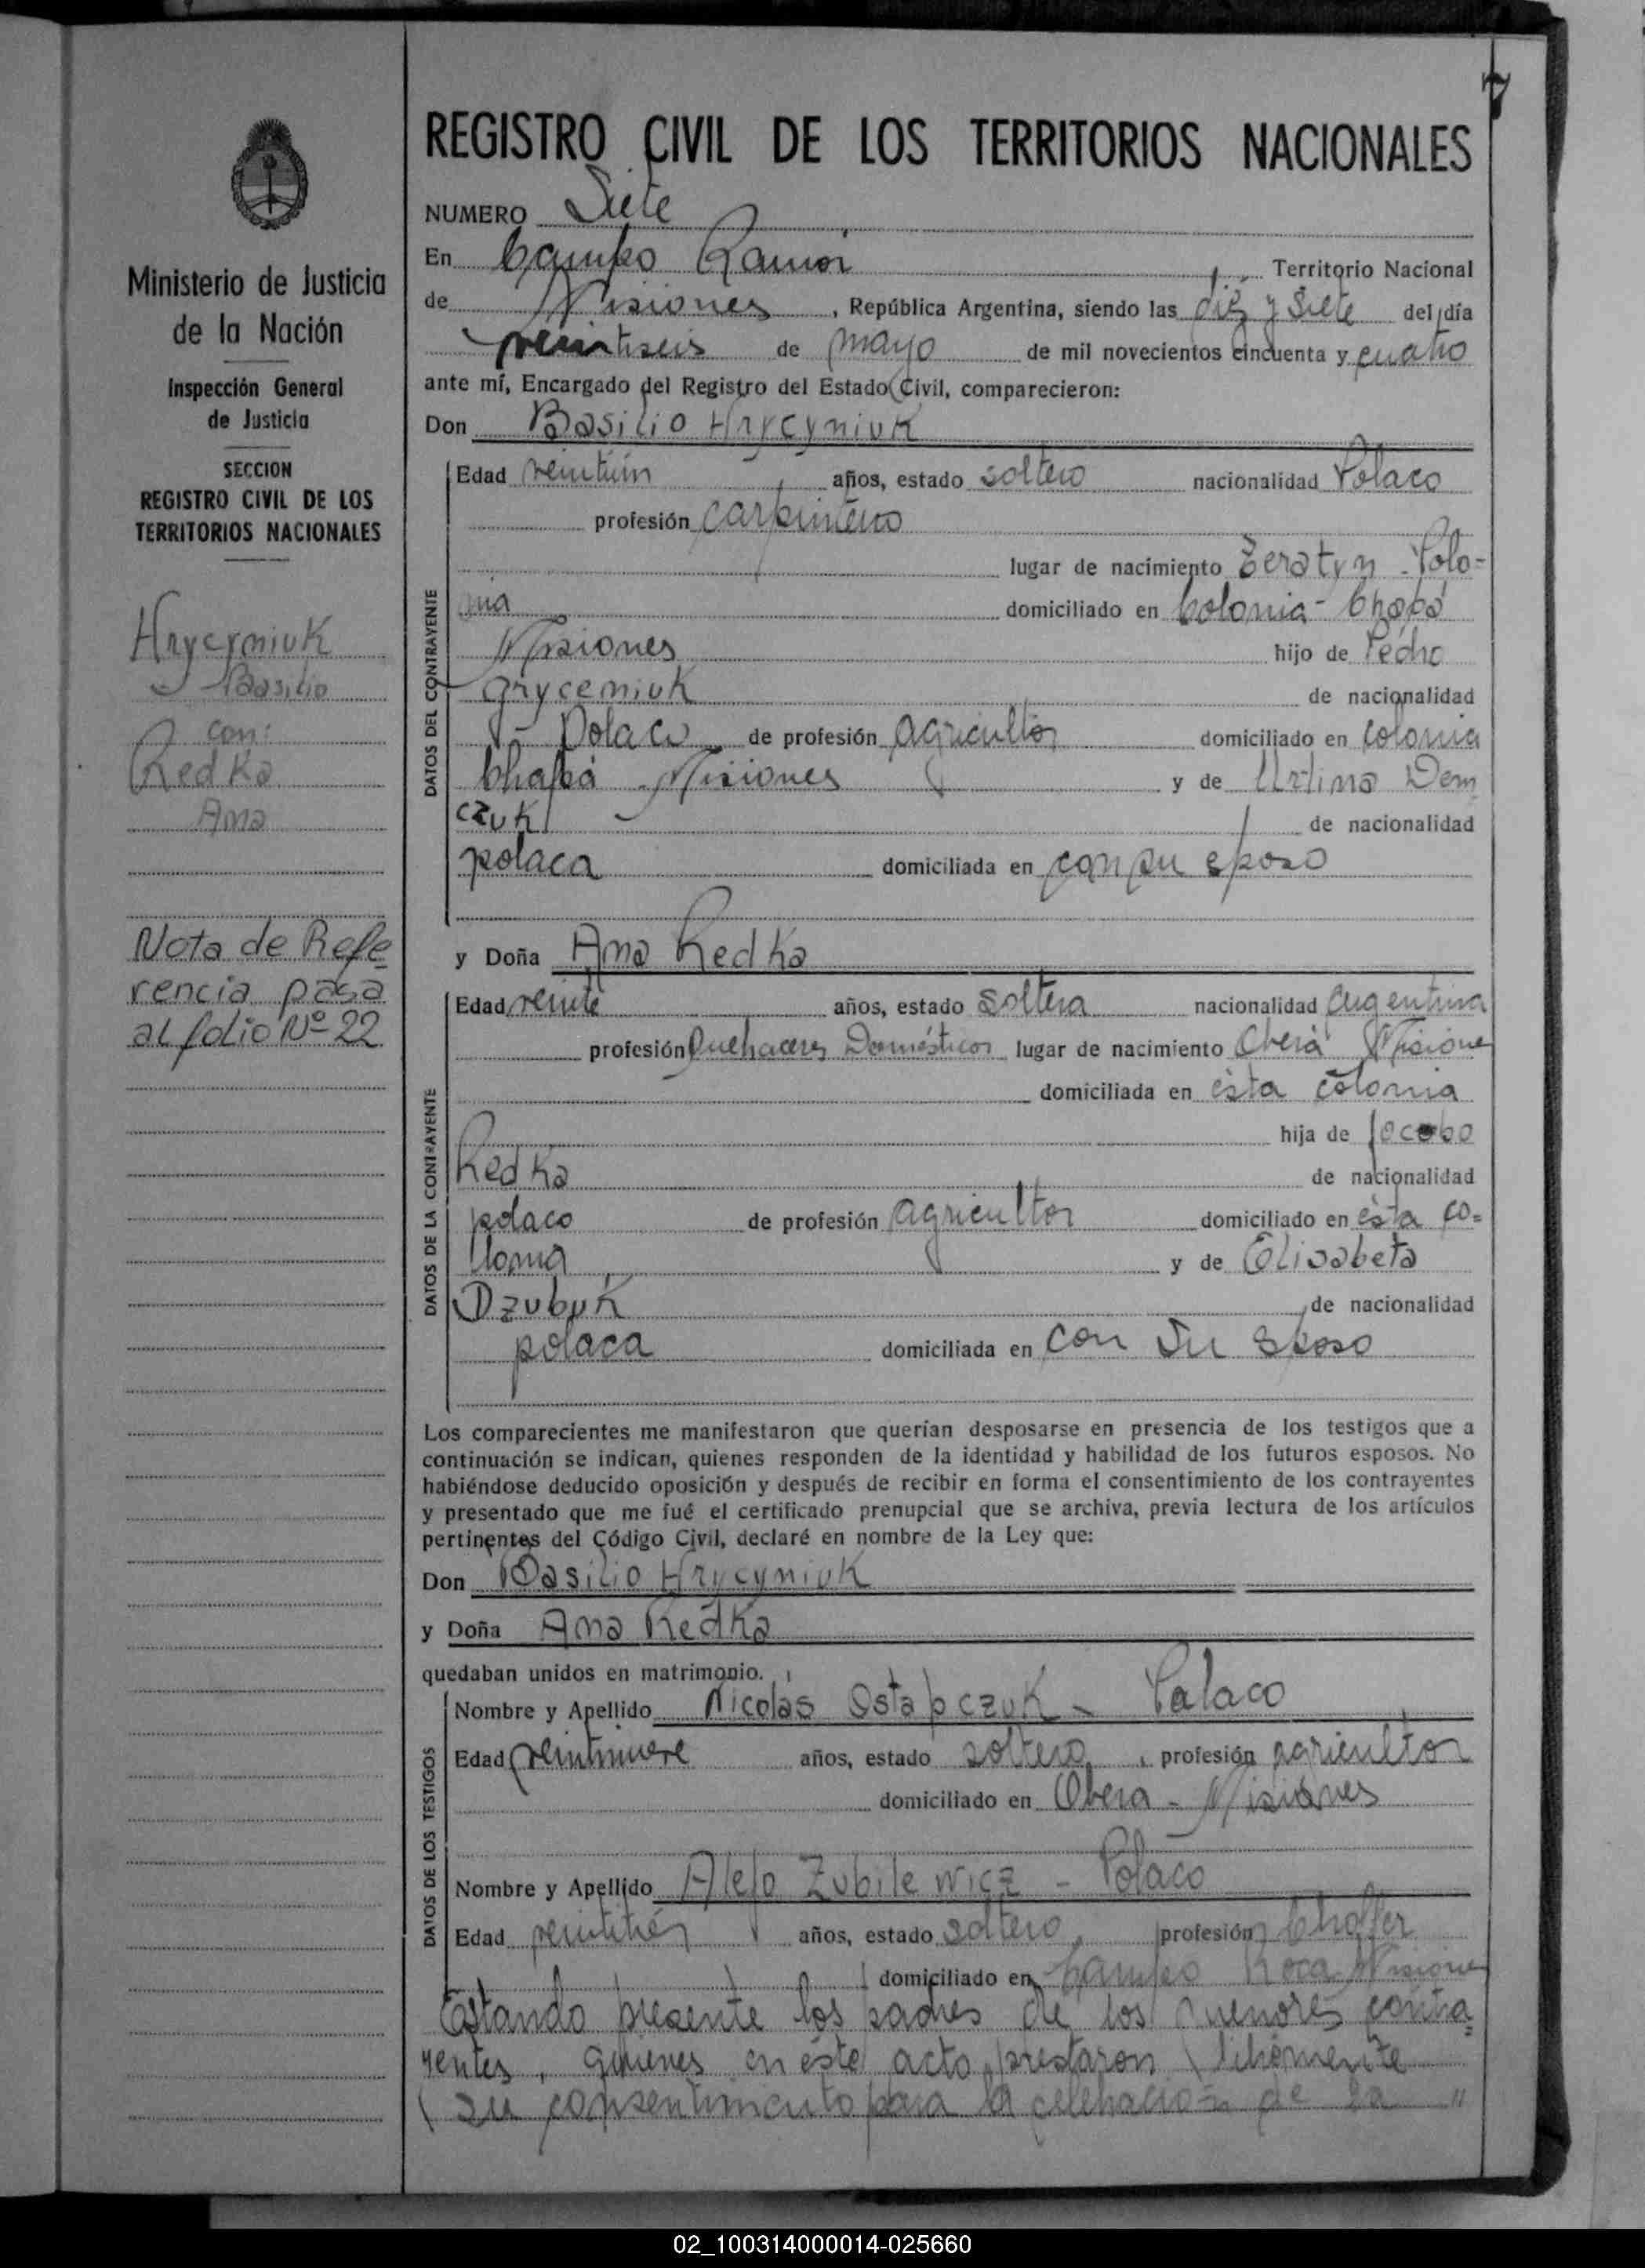 7
REGISTRO CIVIL DE LOS TERRITORIOS NACIONALES
NUMERO Siete
En Campo Ramón Territorio Nacional
de Misiones, República Argentina, siendo las diez y siete del día
veintiseis de mayo de mil novecientos cincuenta y cuatro
ante mí, Encargado del Registro del Estado Civil, comparecieron:
Don Basilio Hrycyniuk
Edad veintiún años, estado soltero nacionalidad Polaco
profesión carpintero
lugar de nacimiento Zeratyn - Polo-
nia domiciliado en Colonia - Chapá
Misiones hijo de Pedro
Gryceniuk de nacionalidad
Polaco de profesión agricultor domiciliado en colonia
Chapá Misiones y de Urlina Dem
czuk de nacionalidad
polaca domiciliada en con su esposo
y Doña Ana Redka
Edad veinte años, estado soltera nacionalidad argentina
profesión Quehaceres Domésticos lugar de nacimiento Oberá Misione
domiciliada en ésta colonia
hija de Jocobo
Redka de nacionalidad
polaco de profesión agricultor domiciliado en ésta co=
lonia y de Elisabeta
Dzubuk de nacionalidad
polaca domiciliada en con su esposo
Los comparecientes me manifestaron que querían desposarse en presencia de los testigos que a
continuación se indican, quienes responden de la identidad y habilidad de los futuros esposos. No
habiéndose deducido oposición y después de recibir en forma el consentimiento de los contrayentes
y presentado que me fué el certificado prenupcial que se archiva, previa lectura de los artículos
pertinentes del Código Civil, declaré en nombre de la Ley que:
Don Basilio Hrycyniuk
y Doña Ana Redka
quedaban unidos en matrimonio.
Nombre y Apellido Nicolas Ostapczuk - Palaco
Edad veintinueve años, estado soltero, profesión agricultor
domiciliado en Obera - Misiones
Nombre y Apellido Alejo Zubilewicz - Polaco
Edad veintitrés años, estado soltero, profesión Choffer
domiciliado en Campo Roca Misione
Estando presente los padres de los menores contra=
yentes, quienes en éste acto prestaron libremente
su consentimiento para la celebración de la "
DATOS DEL CONTRAYENTE
DATOS DE LA CONTRAYENTE
DATOS DE LOS TESTIGOS
Ministerio de Justicia
de la Nación
Inspección General
de Justicia
SECCION
REGISTRO CIVIL DE LOS
TERRITORIOS NACIONALES
Hrycyniuk
Basilio
con:
Redka
Ana
Nota de Refe
rencia pasa
al folio Nº 22
02_100314000014-025660